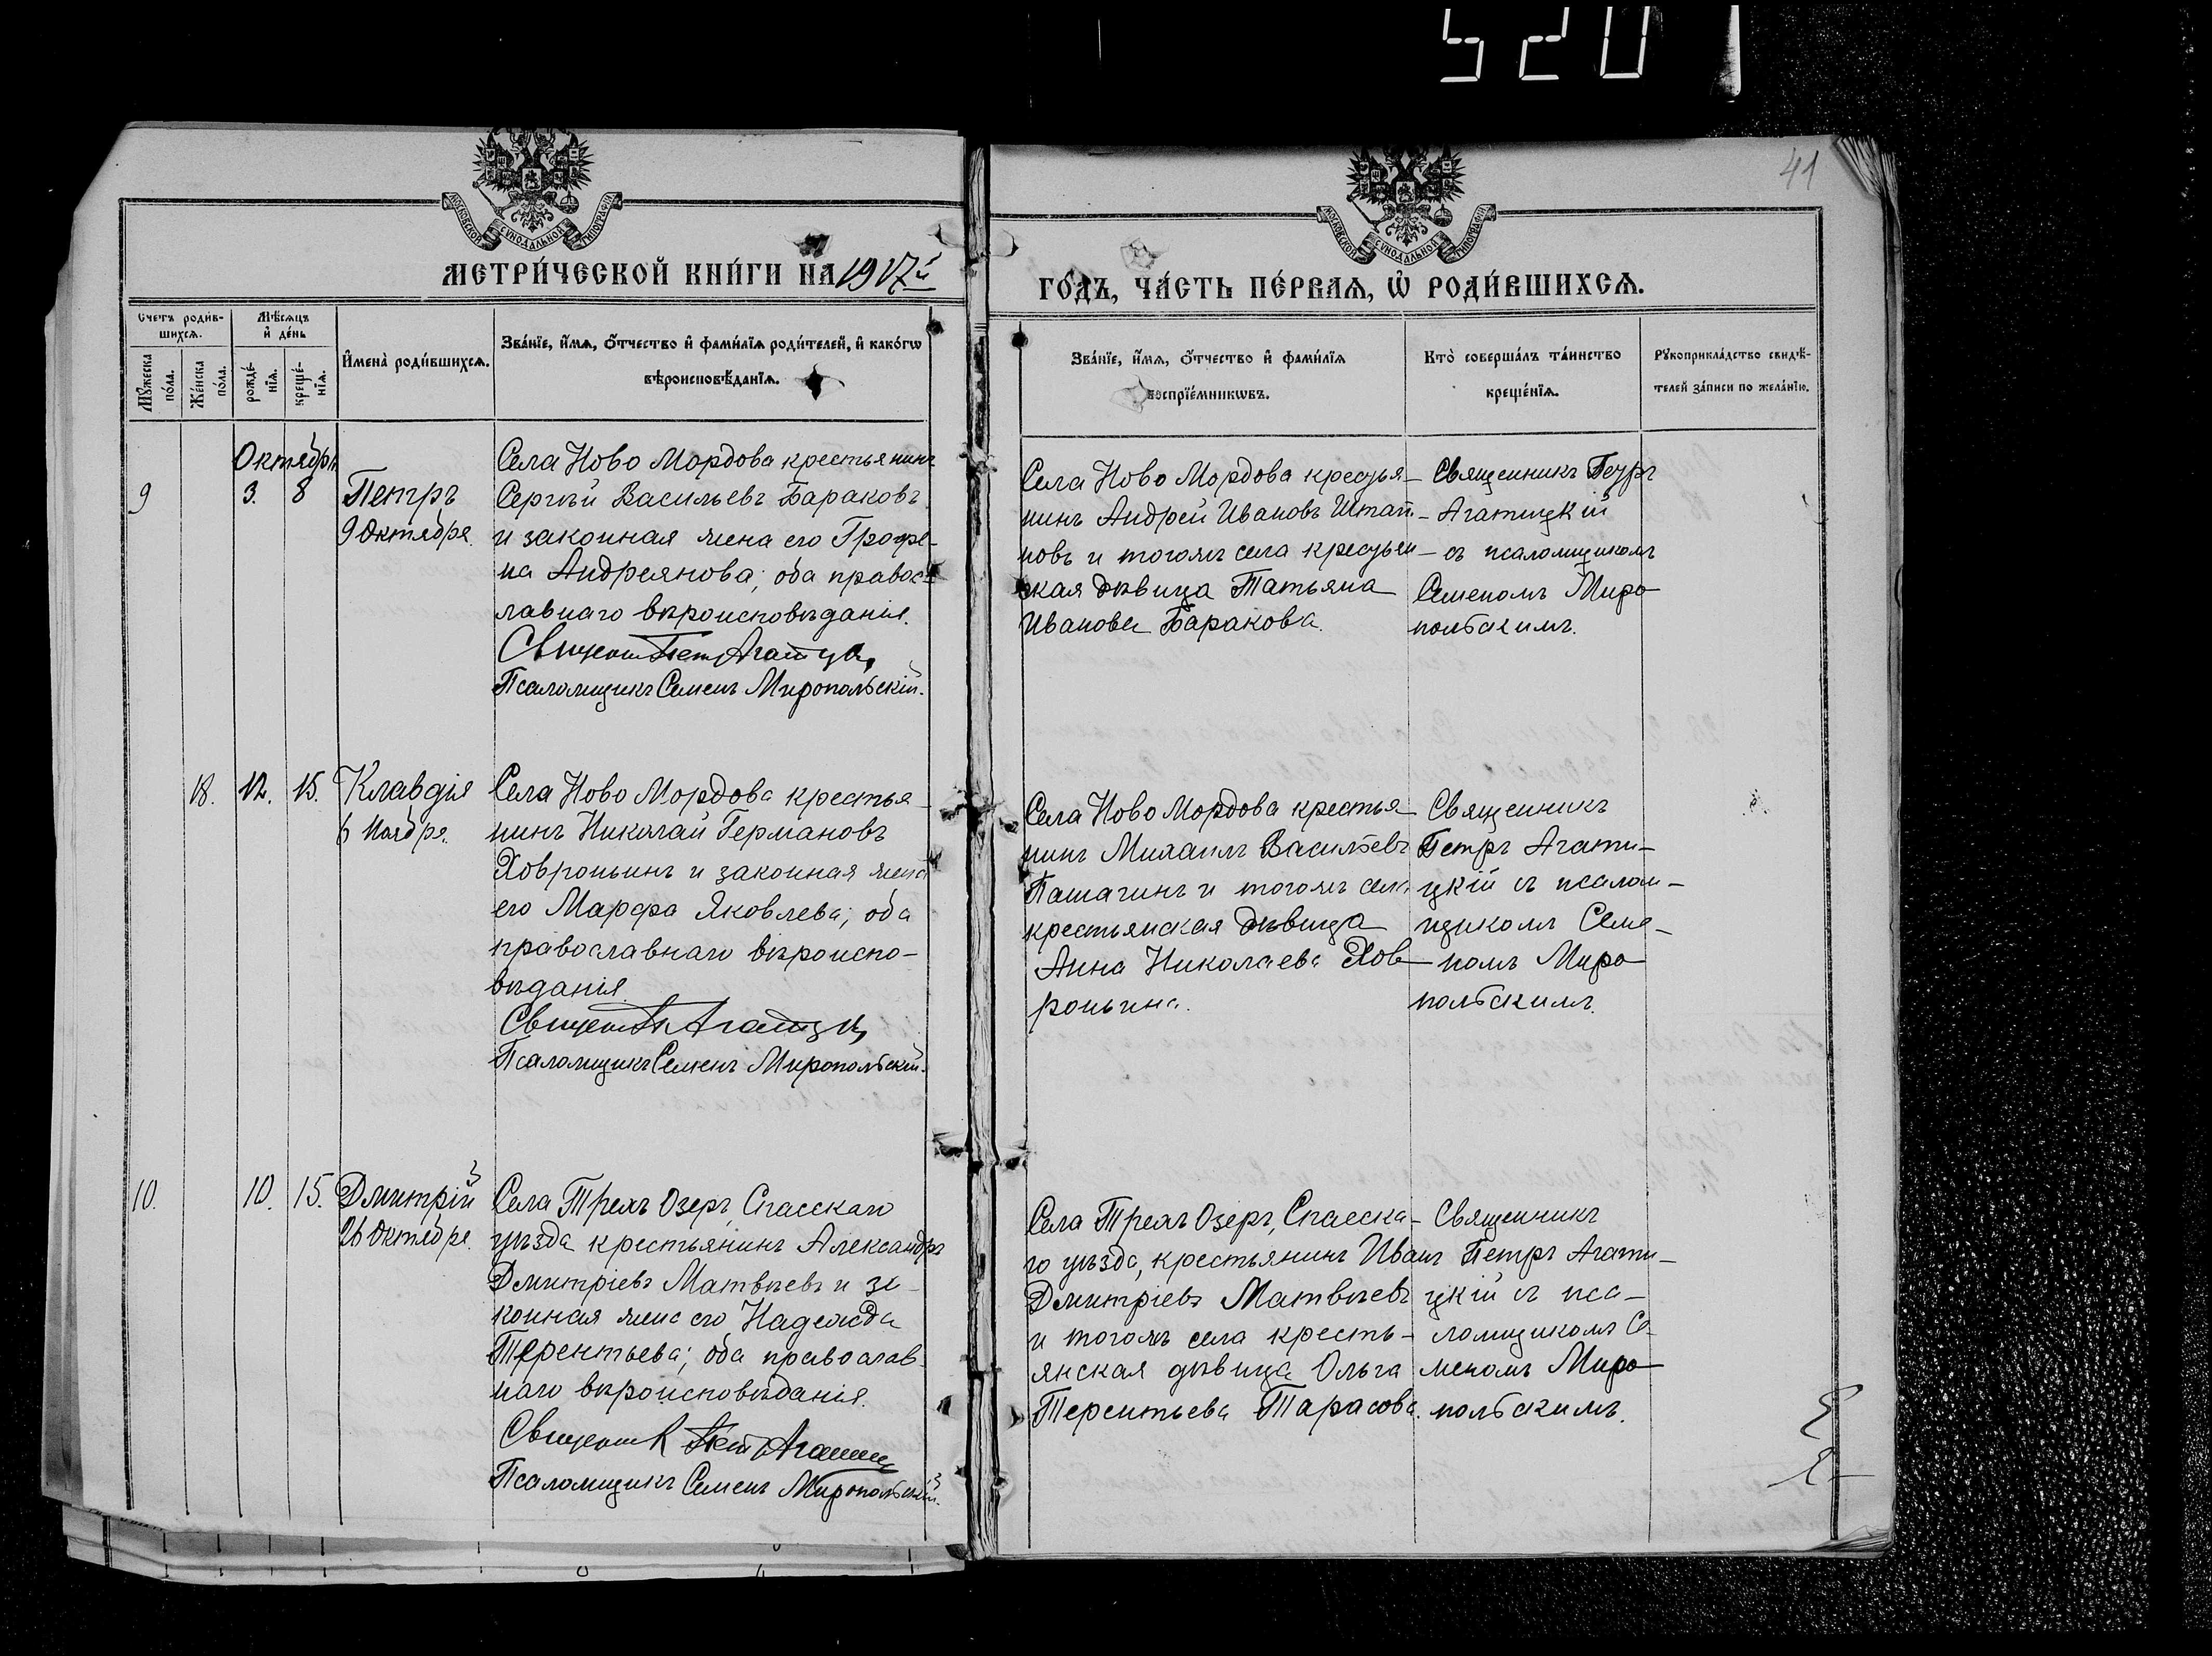 5201
41
МОСКОВСКОЙ СѴНОДАЛЬНОЙ ТИПОГРАФІИ
МОСКОВСКОЙ СѴНОДАЛЬНОЙ ТИПОГРАФІИ
МЕТРИ́ЧЕСКОЙ КНИ́ГИ НА 1917й
ГО́ДЪ, ЧА́СТЬ ПЕ́РВАѦ, Ѡ҆ РОДИ́ВШИХСѦ.
Счетъ роди́вшихсѧ.
Мꙋ́жеска по́ла.
Же́нска по́ла.
Мѣ́сѧцъ и҆ де́нь
рожде́нїѧ.
креще́нїѧ.
И҆мена̀ роди́вшихсѧ.
Зва́нїе, и҆́мѧ, ѻ҆́тчество и҆ фами́лїѧ роди́телей, и҆ како́гѡ
вѣроисповѣ́данїѧ.
Зва́нїе, и҆́мѧ, ѻ҆́тчество и҆ фами́лїѧ
воспрїе́мникѡвъ.
Кто̀ соверша́лъ та́инство
креще́нїѧ.
Рꙋкоприкла́дство свидѣ́-
телей за́писи по жела́нїю.
Октября
9
3. 8
Петръ
9 Октября.
Села Ново Мордова крестьянинъ
Сергѣй Васильевъ Бараковъ
и законная жена его Графе-
на Андреянова; оба правос-
лавнаго вѣроисповѣданія.
Псаломщикъ Семенъ Миропольскій.
Села Ново Мордова крестья-
нинъ Андрей Ивановъ
новъ и тогожъ села крестьян-
ская дѣвица Татьяна
Иванова Баракова.
Священникъ Петръ
Агатицкій
съ псаломщикомъ
Семеномъ Миро-
польскимъ.
18. 12. 15.
Клавдія
6 Ноября.
Села Ново Мордова крестья-
нинъ Николай Германовъ
Ховроньинъ и законная жена
его Марфа Яковлева; оба
православнаго вѣроиспо-
вѣданія.
Псаломщикъ Семенъ Миропольскій.
Села Ново Мордова крестья-
нинъ Михаилъ Васильевъ
Пашагинъ и тогожъ села
крестьянская дѣвица
Анна Николаева Хов-
роньина.
Священникъ
Петръ Агати-
цкій съ псалом-
щикомъ Семе-
номъ Миро-
польскимъ.
10. 10. 15.
Дмитрій
26 Октября.
Села Трехъ Озеръ, Спасскаго
уѣзда крестьянинъ Александръ
Дмитріевъ Матвѣевъ и за-
конная жена его Надежда
Терентьева; оба православ-
наго вѣроисповѣданія.
Псаломщикъ Семенъ Миропольскій.
Села Трехъ Озеръ, Спасска-
го уѣзда, крестьянинъ Иванъ
Дмитріевъ Матвѣевъ
и тогожъ села кресть-
янская дѣвица Ольга
Терентьева Тарасова.
Священникъ
Петръ Агати-
цкій съ пса-
ломщикомъ Се-
меномъ Миро-
польскимъ.